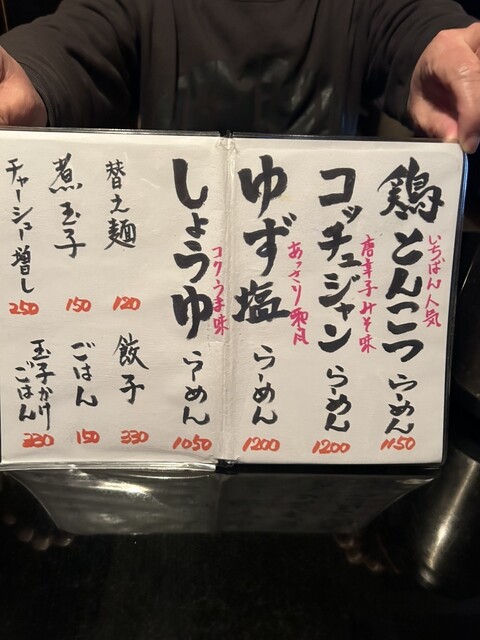 いちばん人気
鶏とんこつらーめん
1150
唐辛子みそ味
コッチュジャンらーめん
1200
あっさり
ゆず塩らーめん
1200
コクうま味
しょうゆらーめん
1050
替え麺
120
餃子
330
煮玉子
150
ごはん
150
チャーシュー増し
250
玉子かけ
ごはん
230